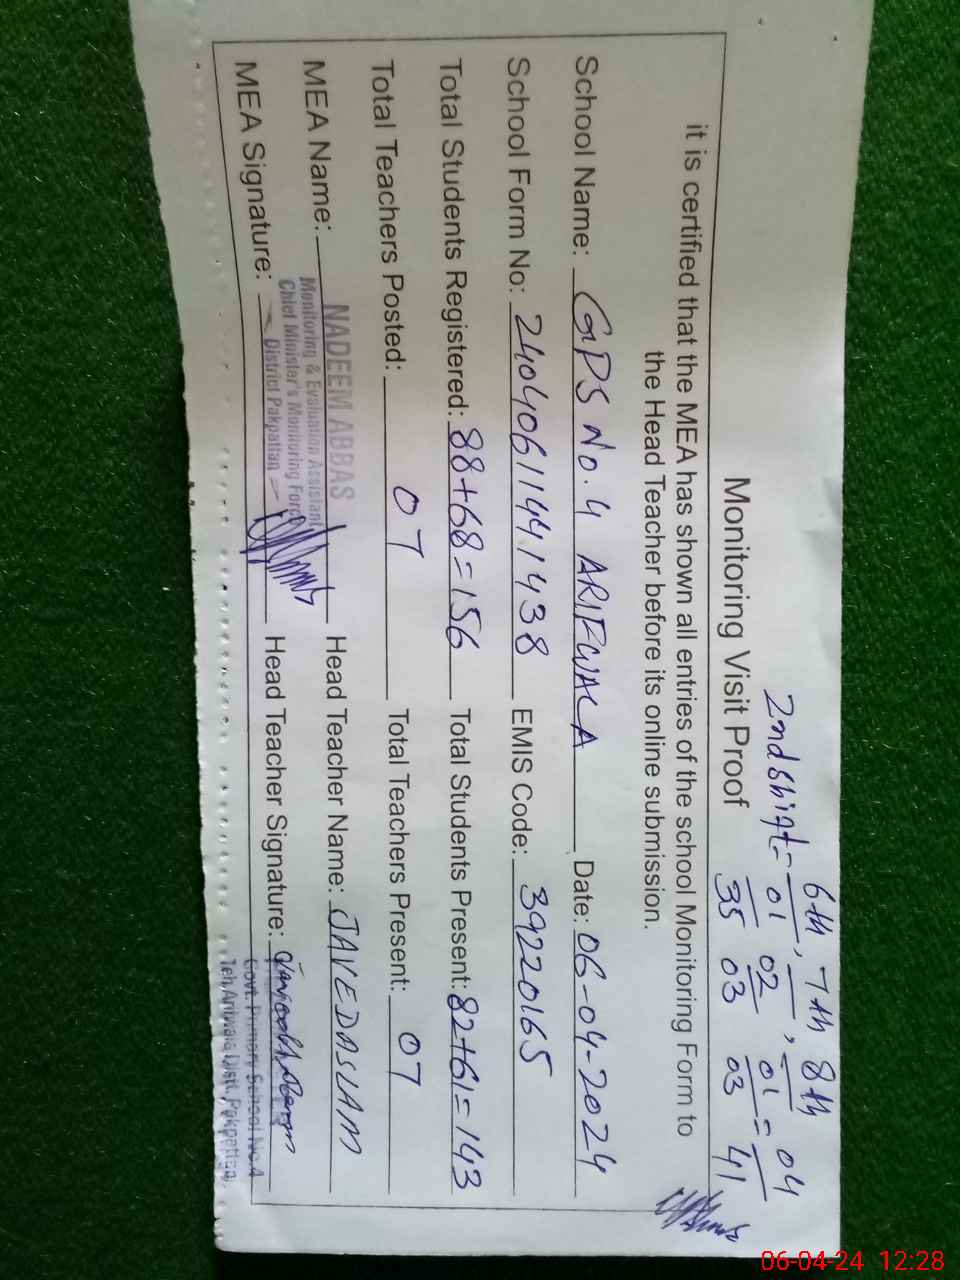 6th, 7th, 8th
2nd shift = 01 02 01 = 04
35 03 03 41
Monitoring Visit Proof
it is certified that the MEA has shown all entries of the school Monitoring Form to
the Head Teacher before its online submission.
School Name: GPS No. 4 ARIFWALA Date: 06-04-2024
School Form No: 24040611441438 EMIS Code: 39220165
Total Students Registered: 88+68=156 Total Students Present: 82+61=143
Total Teachers Posted: 07 Total Teachers Present: 07
MEA Name: NADEEM ABBAS Head Teacher Name: JAVED ASLAM
Monitoring & Evaluation Assistant
Chief Minister's Monitoring Force
District Pakpattan
MEA Signature: Head Teacher Signature:
Govt. Primary School No.4
Teh, Arifwala Distt. Pakpattan
06-04-24 12:28